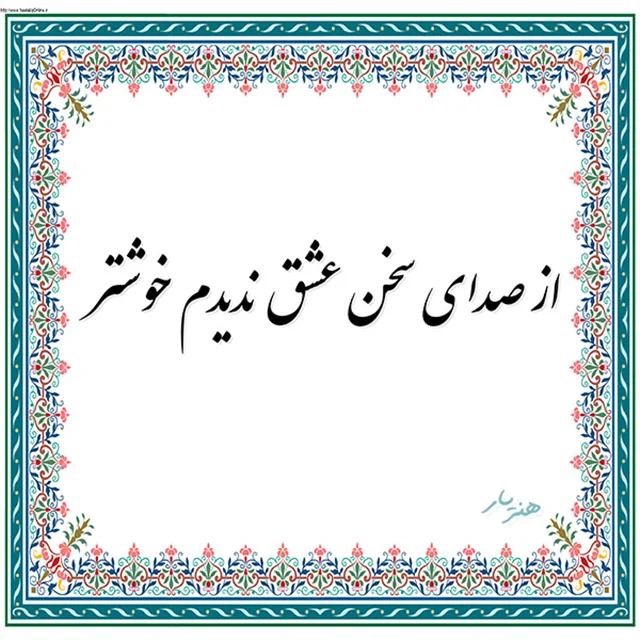 از صدای سخن عشق ندیدم خوشتر
هنریار